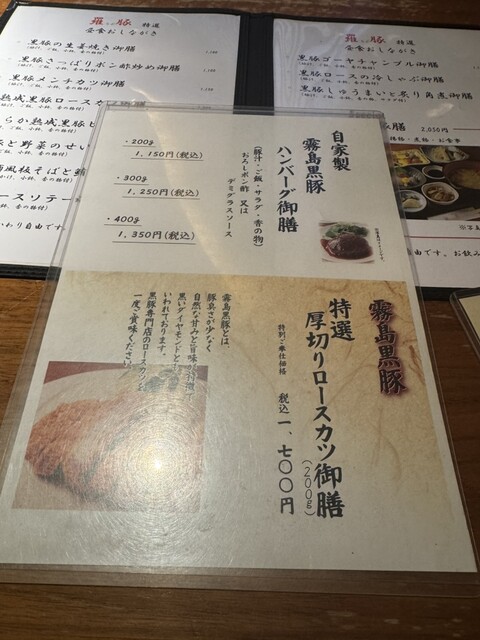 羅豚 特選
昼食おしながき
黒豚の生姜焼き御膳
黒豚さっぱりポン酢炒め御膳
黒豚メンチカツ御膳
羅豚 特選
昼食おしながき
黒豚ゴーヤチャンプル御膳
黒豚ロースの冷しゃぶ御膳
黒豚しゅうまいと炙り角煮御膳
2,050円
自家製
霧島黒豚
ハンバーグ御膳
(豚汁・ご飯・サラダ・香の物)
おろしポン酢 又は
デミグラスソース
・200g
1,150円(税込)
・300g
1,250円(税込)
・400g
1,350円(税込)
霧島黒豚
特選
厚切りロースカツ御膳
(200g)
特別ご奉仕価格
税込 一、七〇〇円
霧島黒豚とは、
豚臭さが少なく
自然な甘みと旨味が
黒いダイヤモンドと
いわれております。
黒豚専門店のロースカツを
一度ご賞味ください